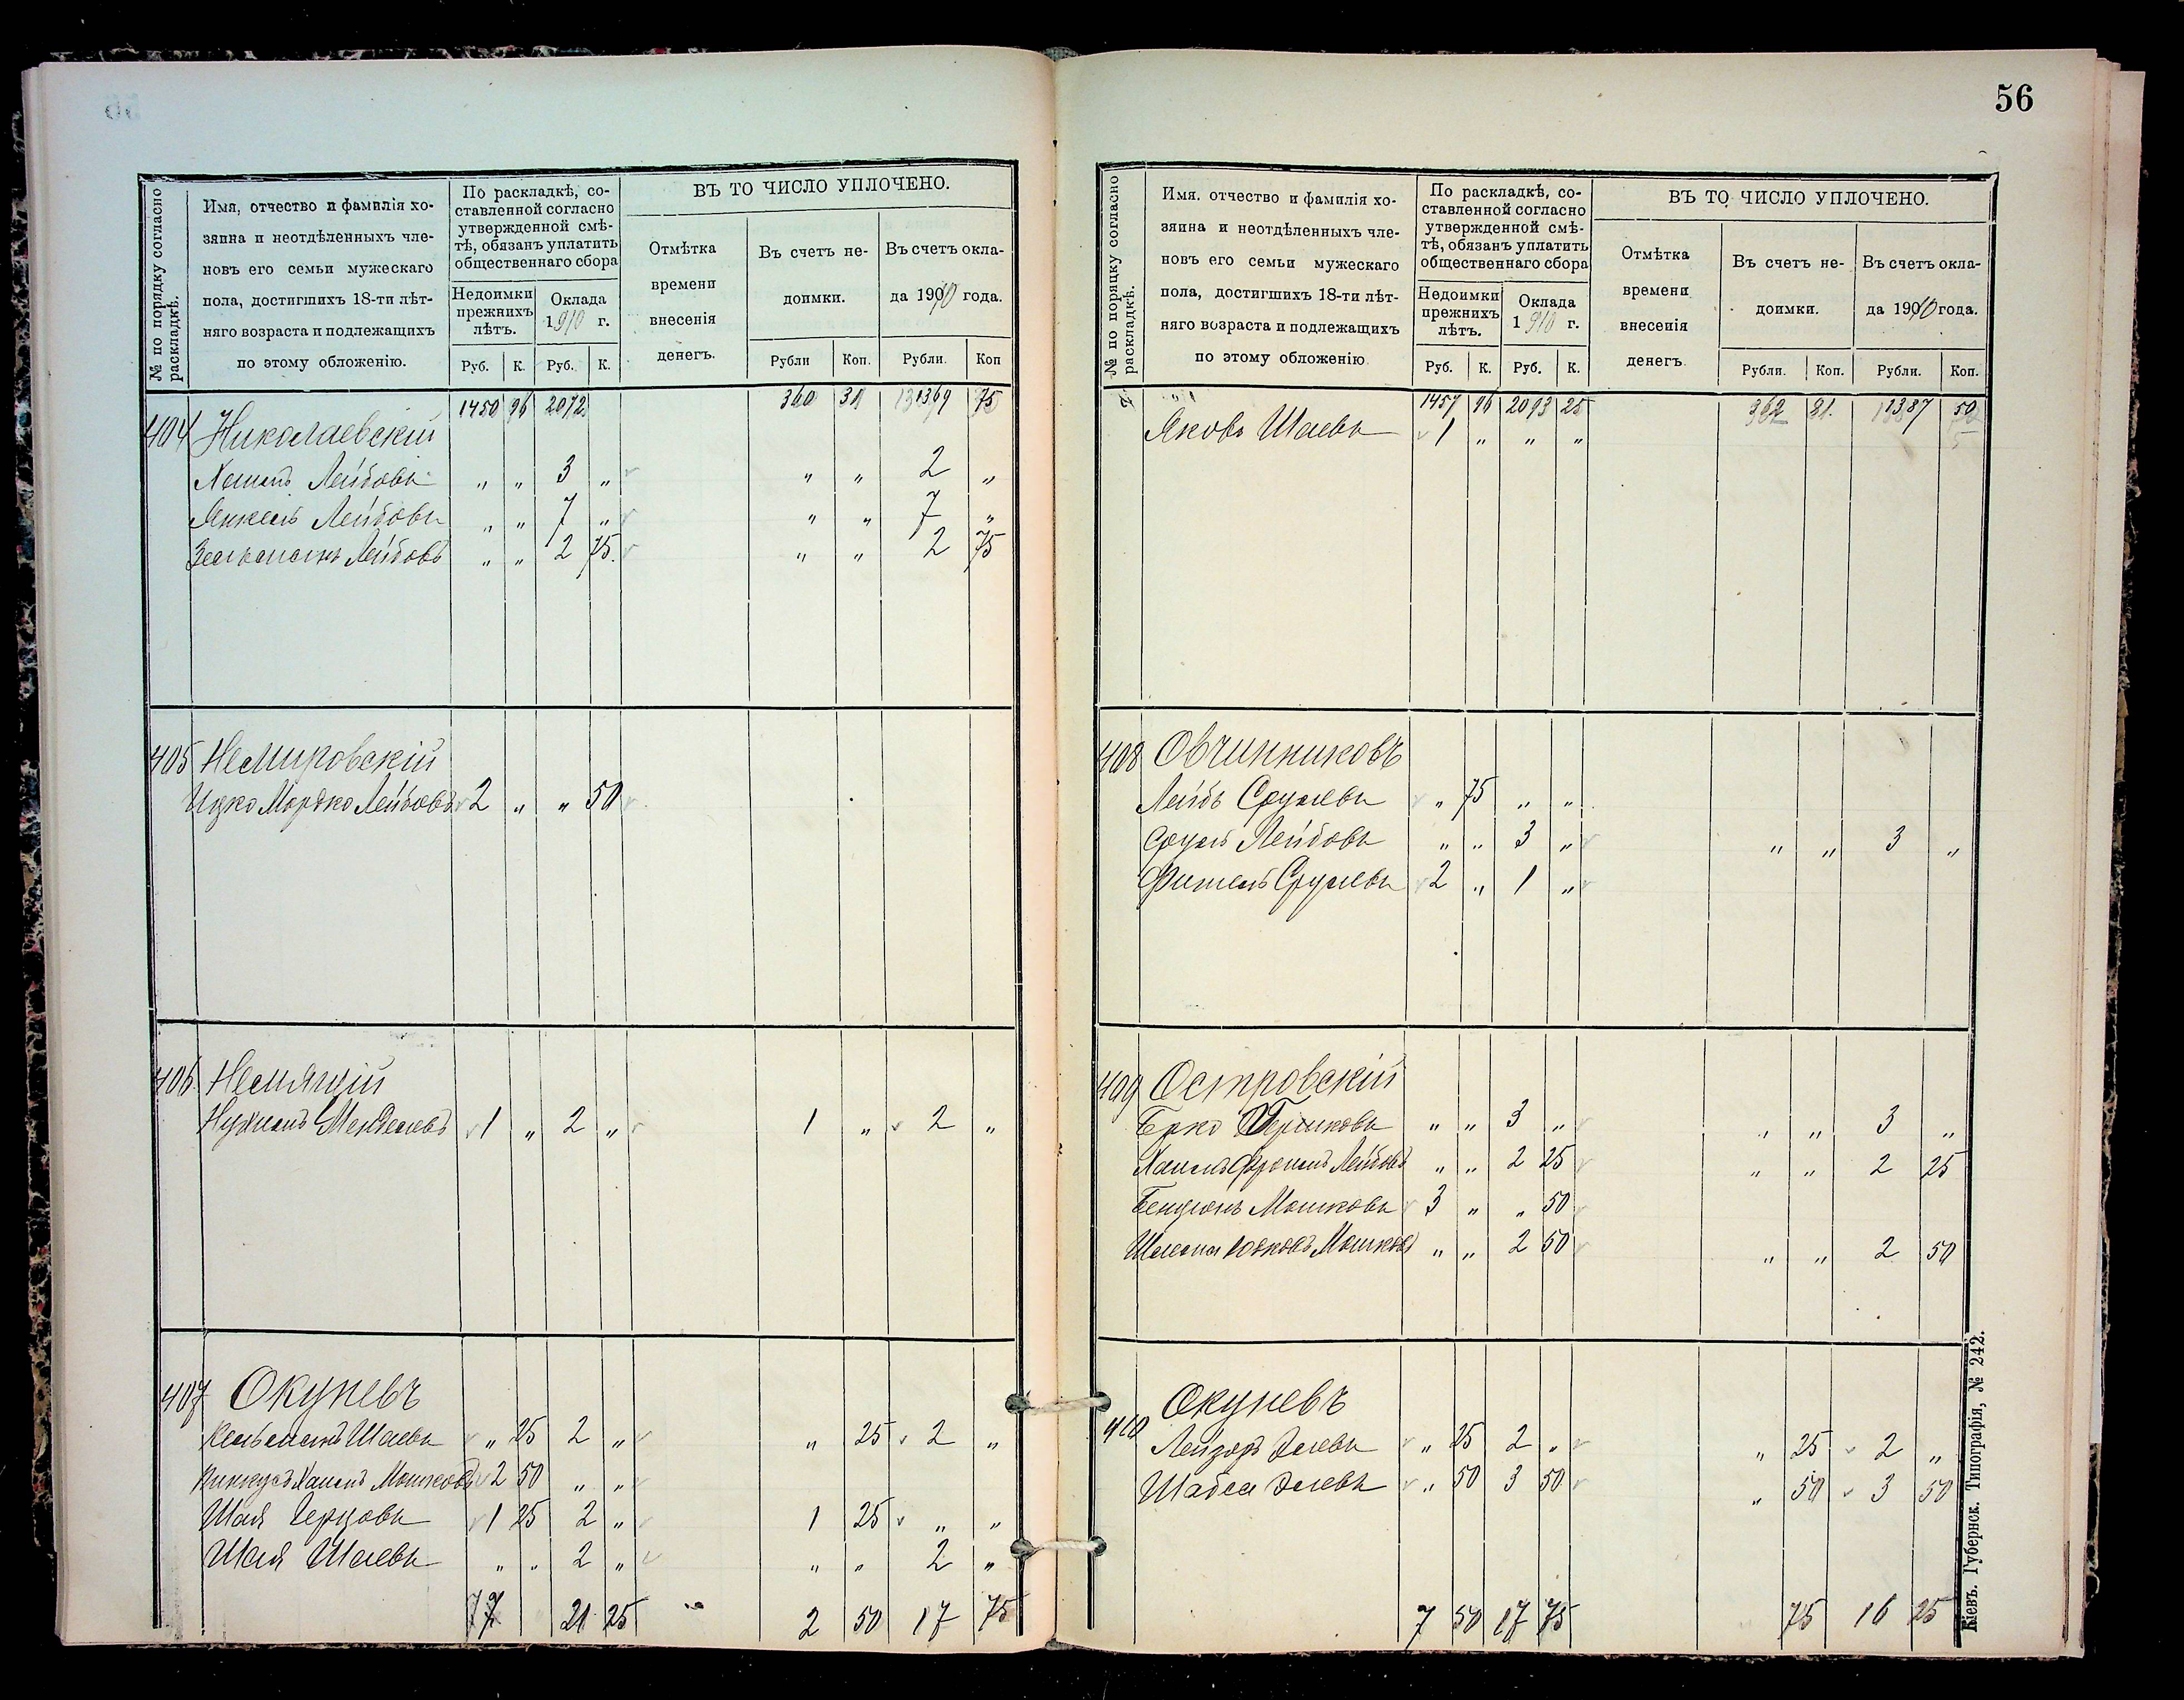 56
№ по порядку согласно раскладкѣ.
Имя, отчество и фамилія хо-
зяина и неотдѣленныхъ чле-
новъ его семьи мужескаго
пола, достигшихъ 18-ти лѣт-
няго возраста и подлежащихъ
по этому обложенію.
По раскладкѣ, со-
ставленной согласно
утвержденной смѣ-
тѣ, обязанъ уплатить
общественнаго сбора
Недоимки
прежнихъ
лѣтъ.
Оклада
1910 г.
Руб. К. Руб. К.
ВЪ ТО ЧИСЛО УПЛОЧЕНО.
Отмѣтка
времени
внесенія
денегъ.
Въ счетъ не-
доимки.
Въ счетъ окла-
да 1910 года.
Рубли Коп. Рубли. Коп
1450 96 2072 360 31 1369 75
404 Николаевскій
Хаимъ Лейбовъ " " 3 " " " 2 "
Янкель Лейбовъ " " 7 " " " 7 "
Залманъ Лейбовъ " " 2 75 " " 2 75
405 Немировскій
Ицко Мордко Лейбовъ 2 " " 50
406 Немлчій
Нухимъ Менделевъ 1 " 2 " 1 " 2 "
407 Окуневъ
Кельманъ Шаевъ " 25 2 " " 25 2 "
Пинкусъ Хаимъ Мошковъ 2 50 " "
Шая Герцовъ 1 25 2 " 1 25 " "
Шая Шаевъ " " 2 " " " 2 "
7 21 25 2 50 17 75
№ по порядку согласно раскладкѣ.
Имя. отчество и фамилія хо-
зяина и неотдѣленныхъ чле-
новъ его семьи мужескаго
пола, достигшихъ 18-ти лѣт-
няго возраста и подлежащихъ
по этому обложенію.
По раскладкѣ, со-
ставленной согласно
утвержденной смѣ-
тѣ, обязанъ уплатить
общественнаго сбора
Недоимки
прежнихъ
лѣтъ.
Оклада
1910 г.
Руб. К. Руб. К.
ВЪ ТО ЧИСЛО УПЛОЧЕНО.
Отмѣтка
времени
внесенія
денегъ.
Въ счетъ не-
доимки.
Въ счетъ окла-
да 1910 года.
Рубли. Коп. Рубли. Коп.
1457 96 2093 25 362 81 1387 50
Яковъ Шаевъ 1 " " "
408 Овчинниковъ
Лейбъ Срулевъ " 75 " "
Сруль Лейбовъ " " 3 " " " 3 "
Фишель Срулевъ 2 " 1 "
409 Островскій
Берко Гершковъ " " 3 " " " 3 "
Хаимъ Фроимъ Лейбовъ " " 2 25 " " 2 25
Бенціонъ Мошковъ 3 " " 50
Шлема Мошковъ " " 2 50 " " 2 50
410 Окуневъ
Лейзоръ Элевъ " 25 2 " " 25 2 "
Шабса Элевъ " 50 3 50 " 50 3 50
7 50 17 75 75 16 25
Кіевъ. Губернск. Типографія, № 242.